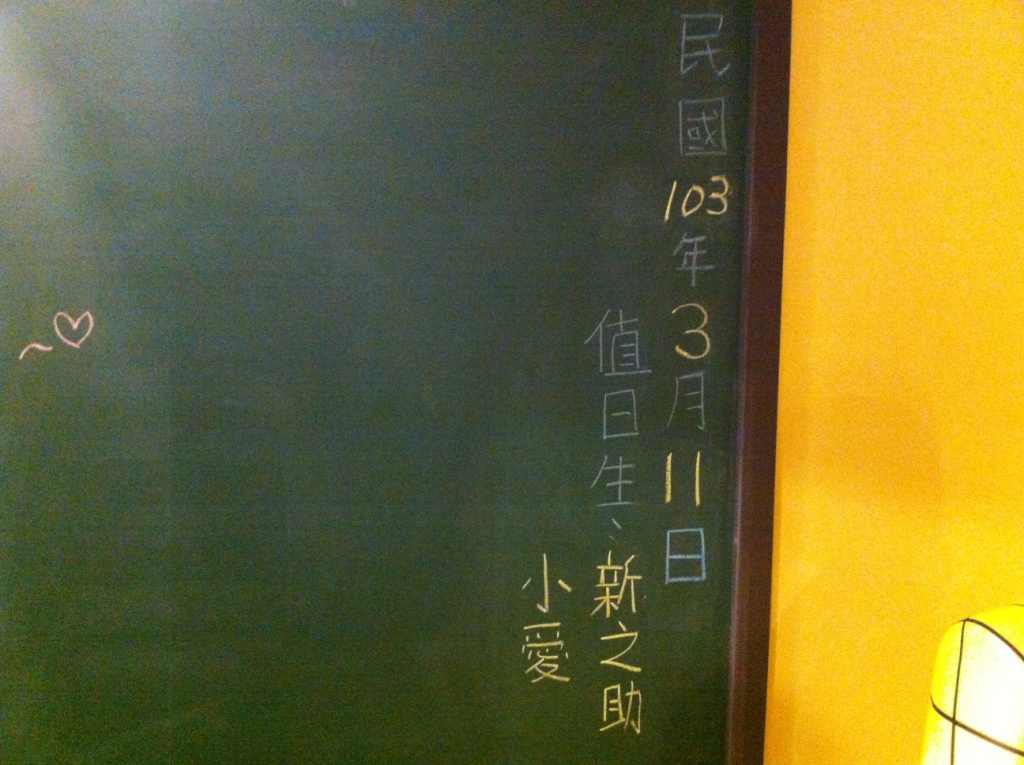 民國103年3月11日
值日生、新之助
小愛